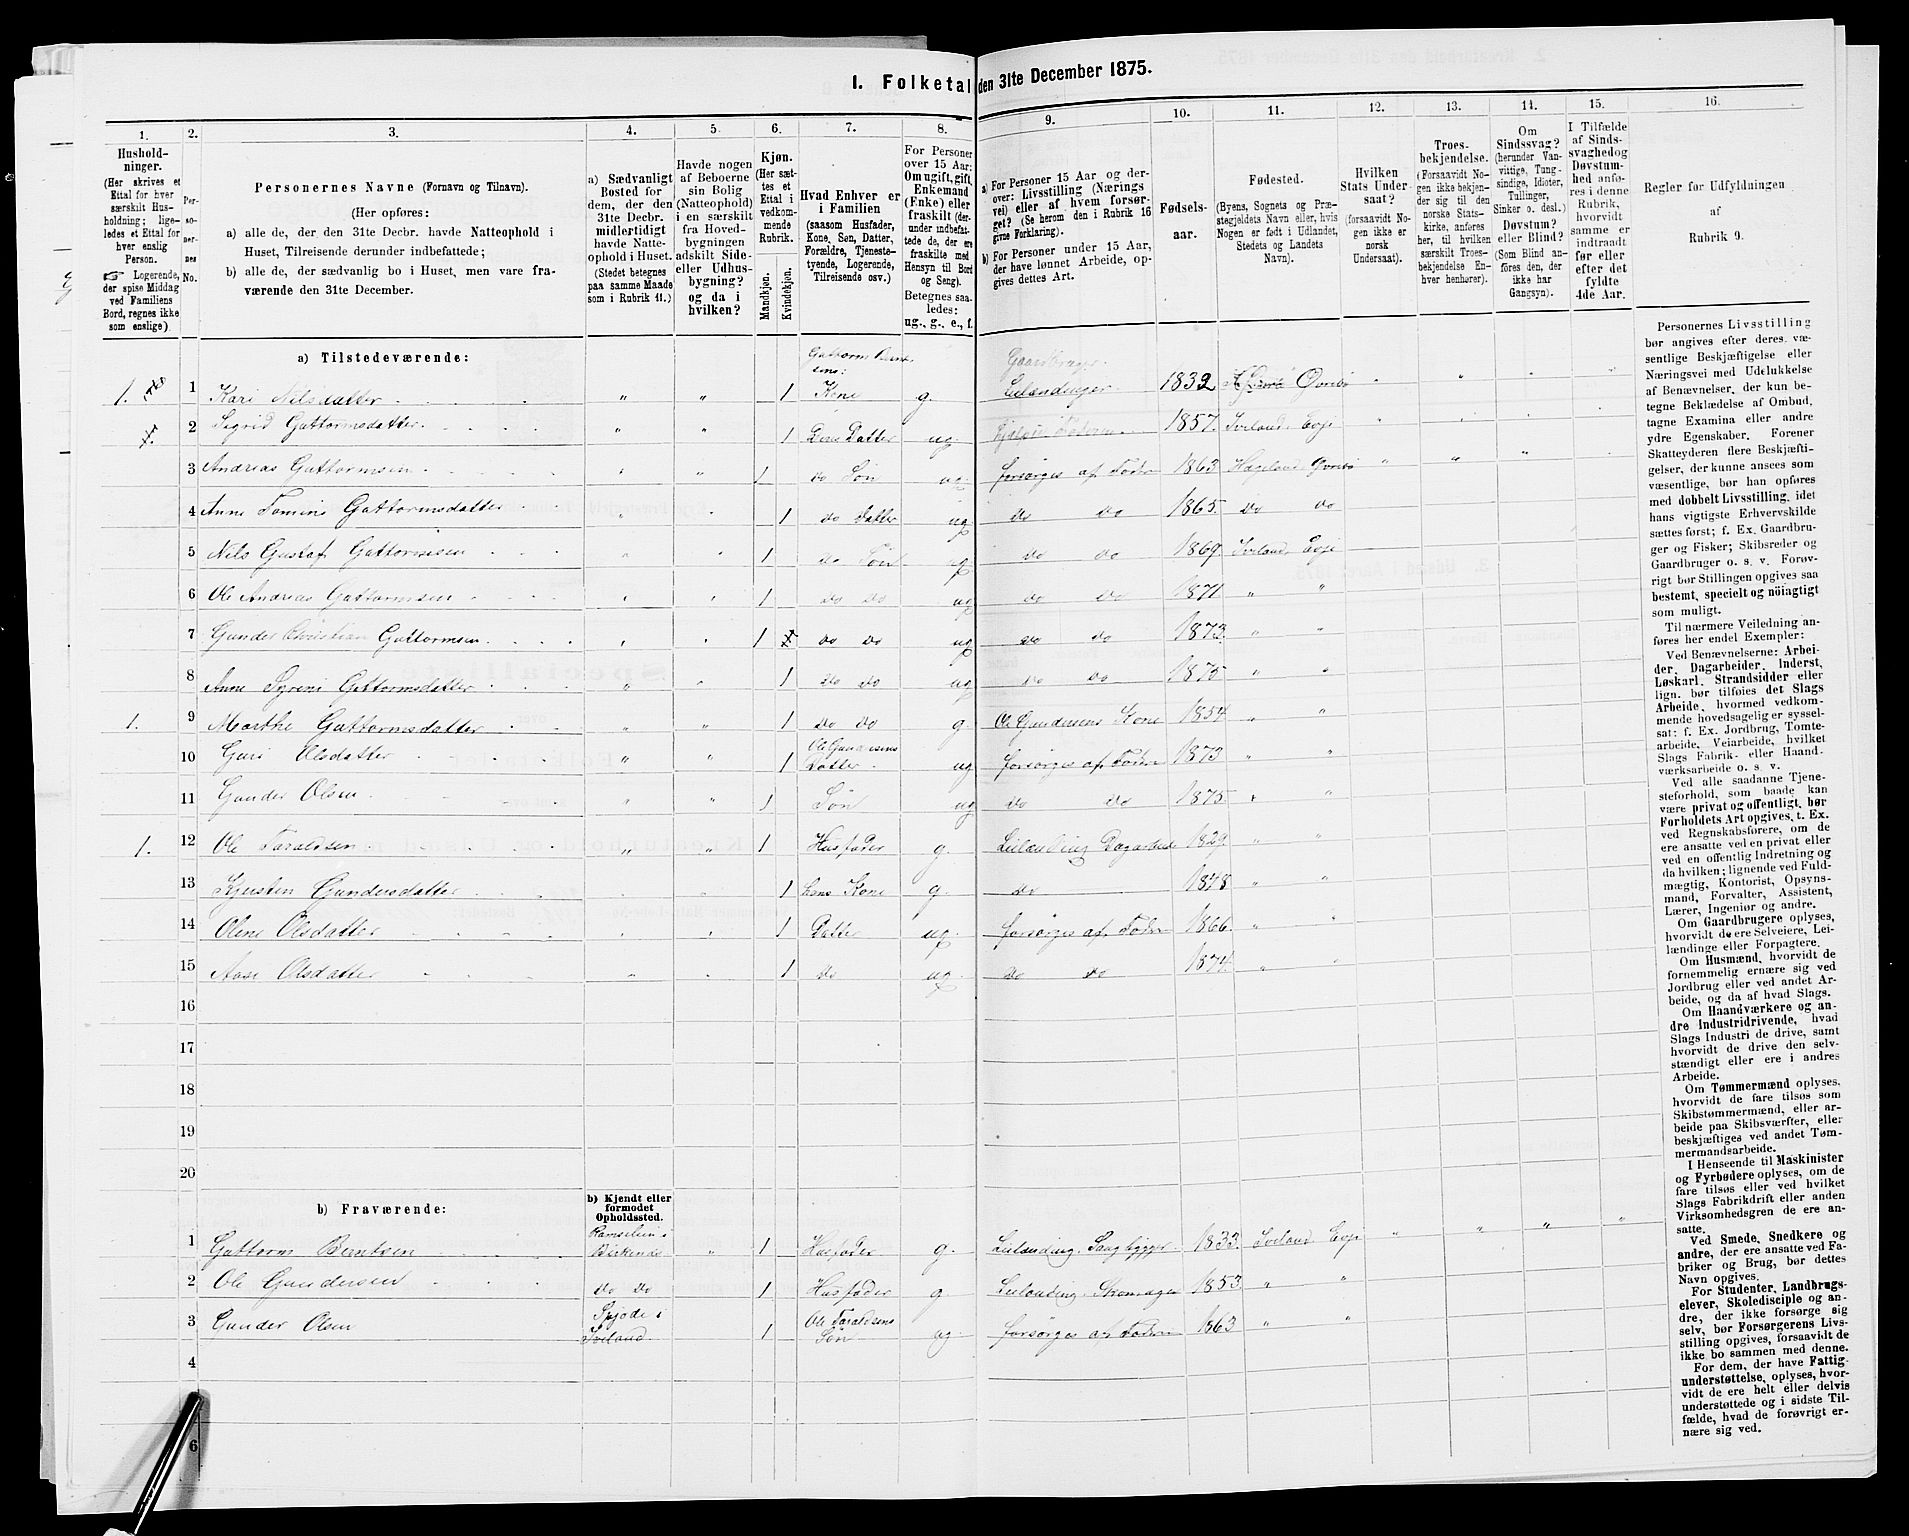 I. Folketal den 31te December 1875.
1. 2. 3. 4. 5. 6. 7. 8. 9. 10. 11. 12. 13. 14. 15. 16.
Hushold-
ninger.
(Her skrives et
Ettal for hver
særskilt Hus-
holdning; lige-
ledes et Ettal for
hver enslig
Person.
☞ Logerende,
der spise Middag
ved Familiens
Bord, regnes ikke
som enslige).
Per-
so-
ner-
nes
No.
Personernes Navne (Fornavn og Tilnavn).
(Her opføres:
a) alle de, der den 31te Decbr. havde Natteophold i
Huset, Tilreisende derunder indbefattede;
b) alle de, der sædvanlig bo i Huset, men vare fra-
værende den 31te December.
a) Sædvanligt
Bosted for
dem, der den
31te Decbr.
midlertidigt
havde Natte-
ophold i Huset.
(Stedet betegnes
paa samme Maade
som i Rubrik 11.)
Havde nogen
af Beboerne
sin Bolig
(Natteophold)
i en særskilt
fra Hoved-
bygningen
adskilt Side-
eller Udhus-
bygning?
og da i
hvilken?
Kjøn.
(Her sæt-
tes et
Ettal i
vedkom-
mende
Rubrik.
Mandkjøn.
Kvindekjøn.
Hvad Enhver er
i Familien
(saasom Husfader,
Kone, Søn, Datter,
Forældre, Tjeneste-
tyende, Logerende,
Tilreisende osv.)
For Personer
over 15 Aar:
Om ugift, gift,
Enkemand
(Enke) eller
fraskilt (der-
under indbefat-
tede de, der ere
fraskilte med
Hensyn til Bord
og Seng).
Betegnes saa-
ledes:
ug., g., e., f.
a) For Personer 15 Aar og der-
over: Livsstilling (Nærings
vei) eller af hvem forsør-
get? (Se herom den i Rubrik 16
givne Forklaring).
b) For Personer under 15 Aar,
der have lønnet Arbeide, op-
gives dettes Art.
Fødsels-
aar.
Fødested.
(Byens, Sognets og Præ-
stegjeldets Navn eller, hvis
Nogen er født i Udlandet,
Stedets og Landets
Navn).
Hvilken
Stats Under-
saat?
(forsaavidt No-
gen ikke er
norsk
Undersaat).
Troes-
bekjendelse.
(Forsaavidt No-
gen ikke bekjen-
der sig til den
norske Stats-
kirke, anføres
her, til hvilken
særskilt Troes-
bekjendelse En-
hver henhører).
Om
Sindssvag?
(herunder Van-
vittige, Tung-
sindige, Idioter,
Tullinger,
Sinker o. desl.)
Døvstum?
eller Blind?
(Som Blind an-
føres den, der
ikke har
Gangsyn).
I Tilfælde
af Sinds-
svaghed og
Døvstum-
hed anfø-
res i denne
Rubrik,
hvorvidt
samme er
indtraadt
før eller
efter det
fyldte
4de Aar.
Regler for Udfyldningen
af
Rubrik 9.
a) Tilstedeværende:
1. 1 Kari Nilsdatter " " 1 Guttorm Berntsens: Kone g. Gaardbruger. Leilændinger. 1832
2 Sigrid Guttormsdatter " " 1 Datter ug. 1857. Iveland Evje
3 Andreas Guttormsen " " 1 do Søn ug. forsørges af Fader 1863 Hægeland Øvrebø
4 Anne Tomine Guttormsdatter " 1 do Datter ug. do do 1865. do do
5 Nils Gustaf Guttormsen " 1 do Søn ug. do do 1869. Iveland Evje
6 Ole Andreas Guttormsen 1 do do ug do do 1871 " "
7 Gunder Christian Guttormsen 1 do do ug do do 1873. " "
8 Anne Guttormsdatter " 1 do do ug do do 1875 " "
1. 9 Marthe Guttormsdatter " " 1 do do g. Ole Gundersens Kone 1854 " "
10 Guri Olsdatter " " 1 Ole Gundersens Datter ug forsørges af Fader 1873 " "
11 Gunder Olsen " " 1 Søn ug do do 1875 " "
1. 12 Ole Taraldsen " " 1 Husfader g. Leilænding Dagarbeid 1829 " "
13 Kjersten Gundersdatter 1 hans Kone g. do " "
14 Oline Olsdatter 1 Datter ug. forsørges af Fader 1866. " "
15 Aase Olsdatter " 1 do ug. do do 1874. " "
16
17
18
19
20
b) Fraværende:
b) Kjendt eller
formodet
Opholdssted.
1 Guttorm Berntsen i Birkenes " 1 Husfader g. Leilænding. 1833. Iveland Evje " " " "
2 Ole Gundersen do do 1 Husfader g. Leilænding. Skomager 1853. " "
3 Gunder Olsen i Iveland 1 Ole Taraldsens Søn ug. forsørges af Fader 1863 " "
4
6
Personernes Livsstilling
bør angives efter deres væ-
sentlige Beskjæftigelse eller
Næringsvei med Udelukkelse
af Benævnelser, der kun be-
tegne Beklædelse af Ombud,
tagne Examina eller andre
ydre Egenskaber. Forener
Skatteyderen flere Beskjæfti-
gelser, der kunne ansees som
væsentlige, bør han opføres
med dobbelt Livsstilling, idet
hans vigtigste Erhvervskilde
sættes først; f. Ex. Gaardbru-
ger og Fisker; Skibsreder og
Gaardbruger o. s. v. Forøv-
rigt bør Stillingen opgives saa
bestemt, specielt og nöiagtigt
som muligt.
Til nærmere Veiledning an-
føres her endel Exempler:
Ved Benævnelserne: Arbei-
der, Dagarbeider, Inderst,
Løskarl, Strandsidder eller
lign. bør tilføies det Slags
Arbeide, hvormed vedkom-
mende hovedsagelig er syssel-
sat: f. Ex. Jordbrug, Tomte-
arbeide, Veiarbeide, hvilket
Slags Fabrik- eller Haand-
værksarbeide o. s. v.
Ved alle saadanne Tjene-
steforhold, som baade kan
være privat og offentligt, bør
Forholdets Art opgives, t. Ex.
ved Regnskabsførere, om de
ere ansatte ved en privat eller
ved en offentlig Indretning og
da hvilken; lignende ved Fuld-
mægtig, Kontorist, Opsyns-
mand, Forvalter, Assistent,
Lærer, Ingeniør og andre.
Om Gaardbrugere oplyses,
hvorvidt de ere Selveiere, Lei-
lændinge eller Forpagtere.
Om Husmænd, hvorvidt de
fornemmelig ernære sig ved
Jordbrug eller ved andet Ar-
beide, og da af hvad Slags.
Om Haandværkere og an-
dre Industridrivende, hvad
Slags Industri de drive, samt
hvorvidt de drive den selv-
stændigt eller ere i andres
Arbeide.
Om Tømmermænd oplyses,
hvorvidt de fare tilsøs som
Skibstømmermænd, eller ar-
beide paa Skibsværfter, eller
beskjæftiges ved andet Tøm-
mermandsarbeide.
I Henseende til Maskinister
og Fyrbødere oplyses, om de
fare tilsøs eller ved hvilket
Slags Fabrikdrift eller anden
Virksomhedsgren de ere an-
satte.
Ved Smede, Snedkere og
andre, der ere ansatte ved Fa-
briker og Brug, bør dettes
Navn opgives.
For Studenter, Landbrugs-
elever, Skoledisciple og an-
dre, der ikke forsørge sig
selv, bør Forsørgerens Livs-
stilling opgives, forsaavidt de
ikke bo sammen med denne.
For dem, der have Fattig-
understøttelse, oplyses, hvor-
vidt de ere helt eller delvis
understøttede og i sidste Til-
fælde, hvad de forøvrigt er-
nære sig ved.